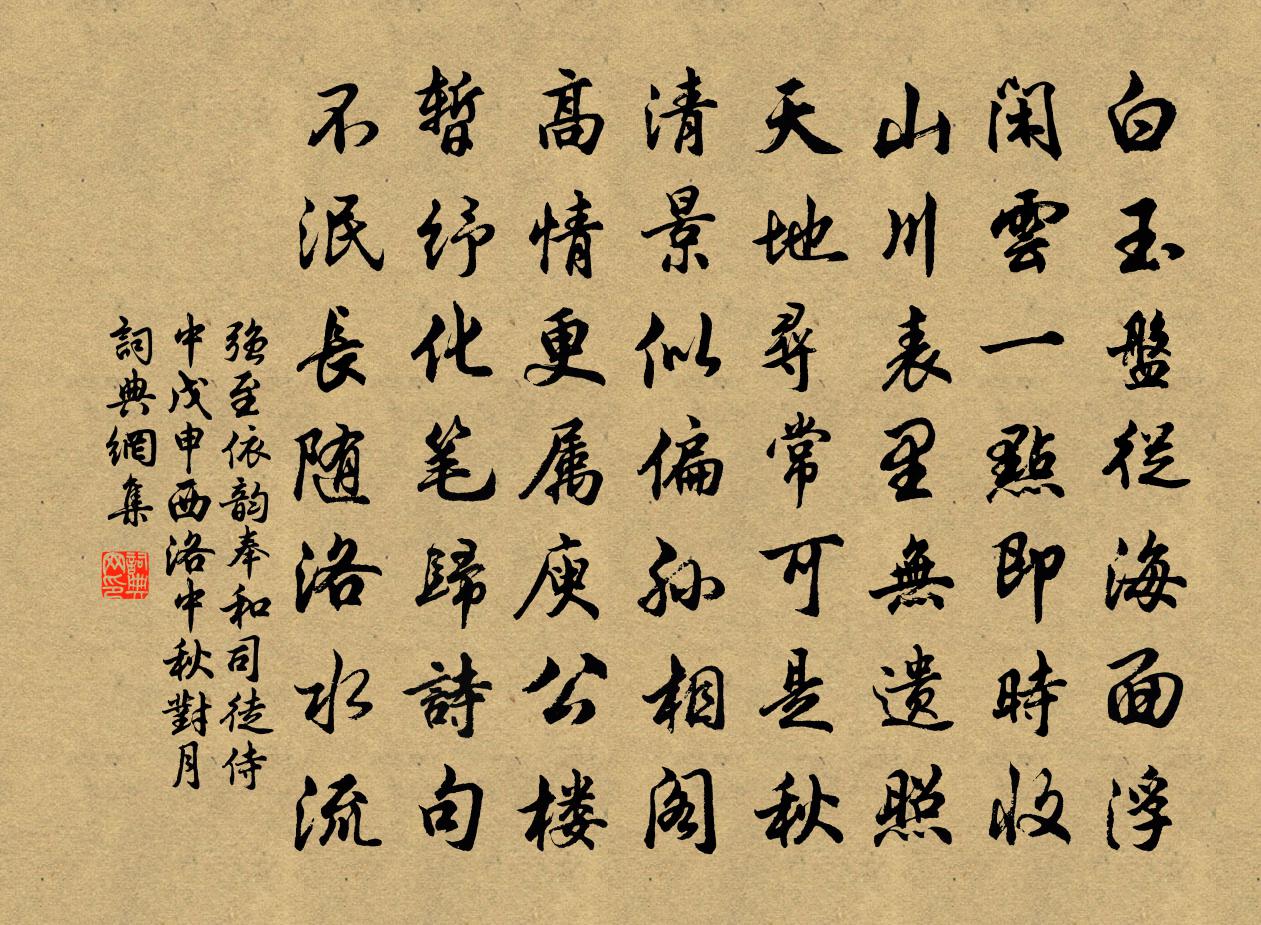 白玉盤從海面浮
閑雲一點即時收
山川表里無遗照
天地尋常可是秋
清景似偏孙相阁
高情更属庾公楼
暫纾化笔歸詩句
不泯長随洛水流
强至依韵奉和司徒侍
中戊申西洛中秋對月
詞典網集